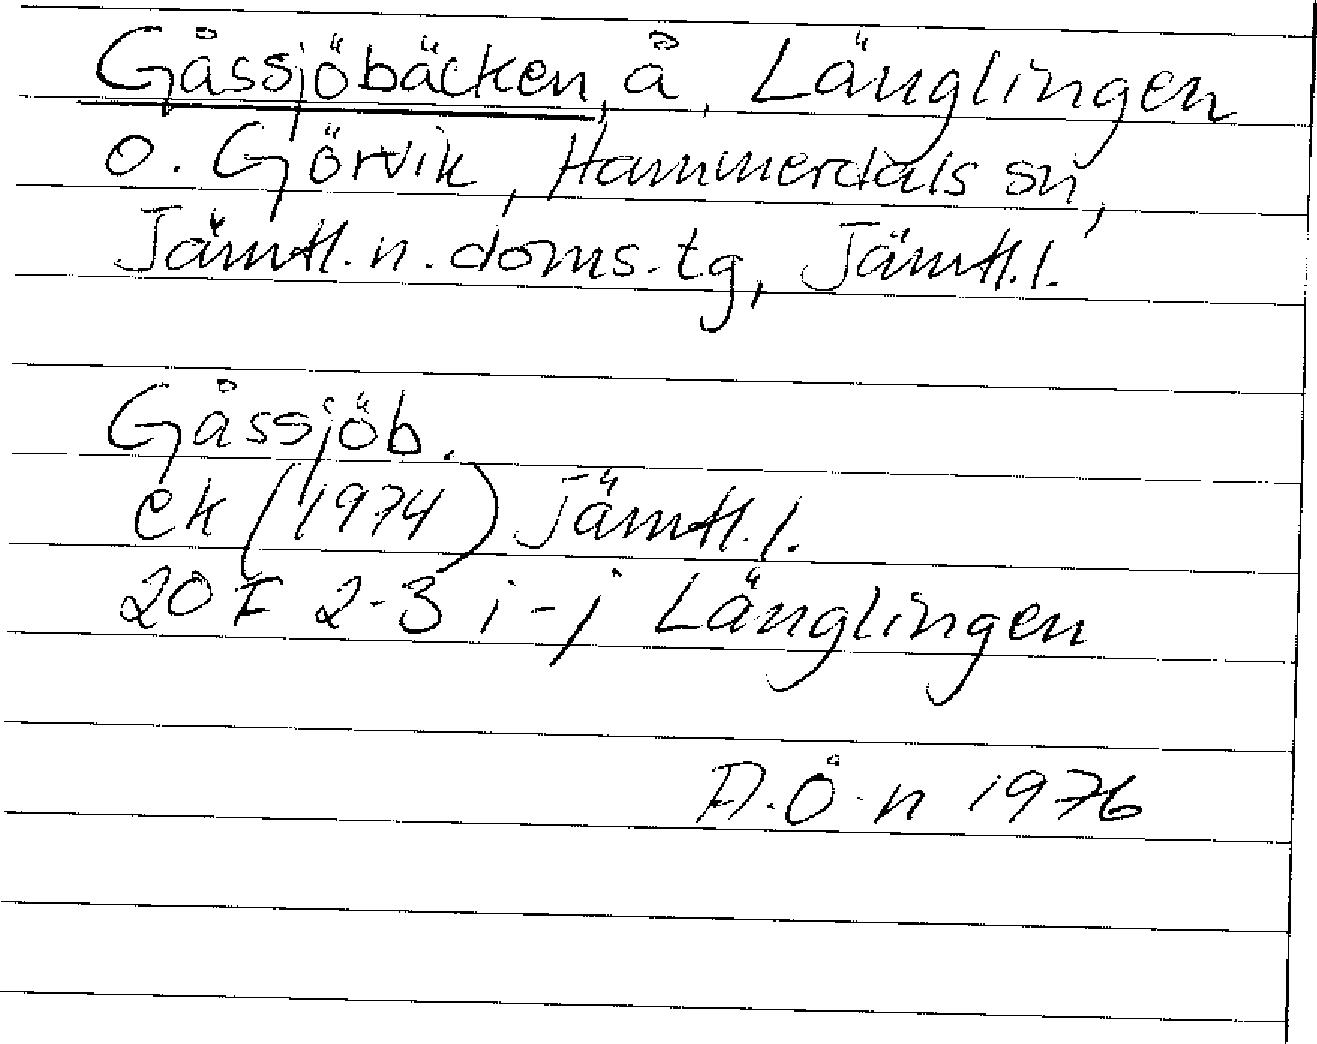 Gåssjöbäcken, å, Länglingen
o. Görvik, Hammerdals sn,
Jämtl. n. doms. tg, Jämtl. l.
Gåssjöb.
ek (1974) Jämtl. l.
20 F 2-3 i-j Länglingen
A. Ö-n 1976